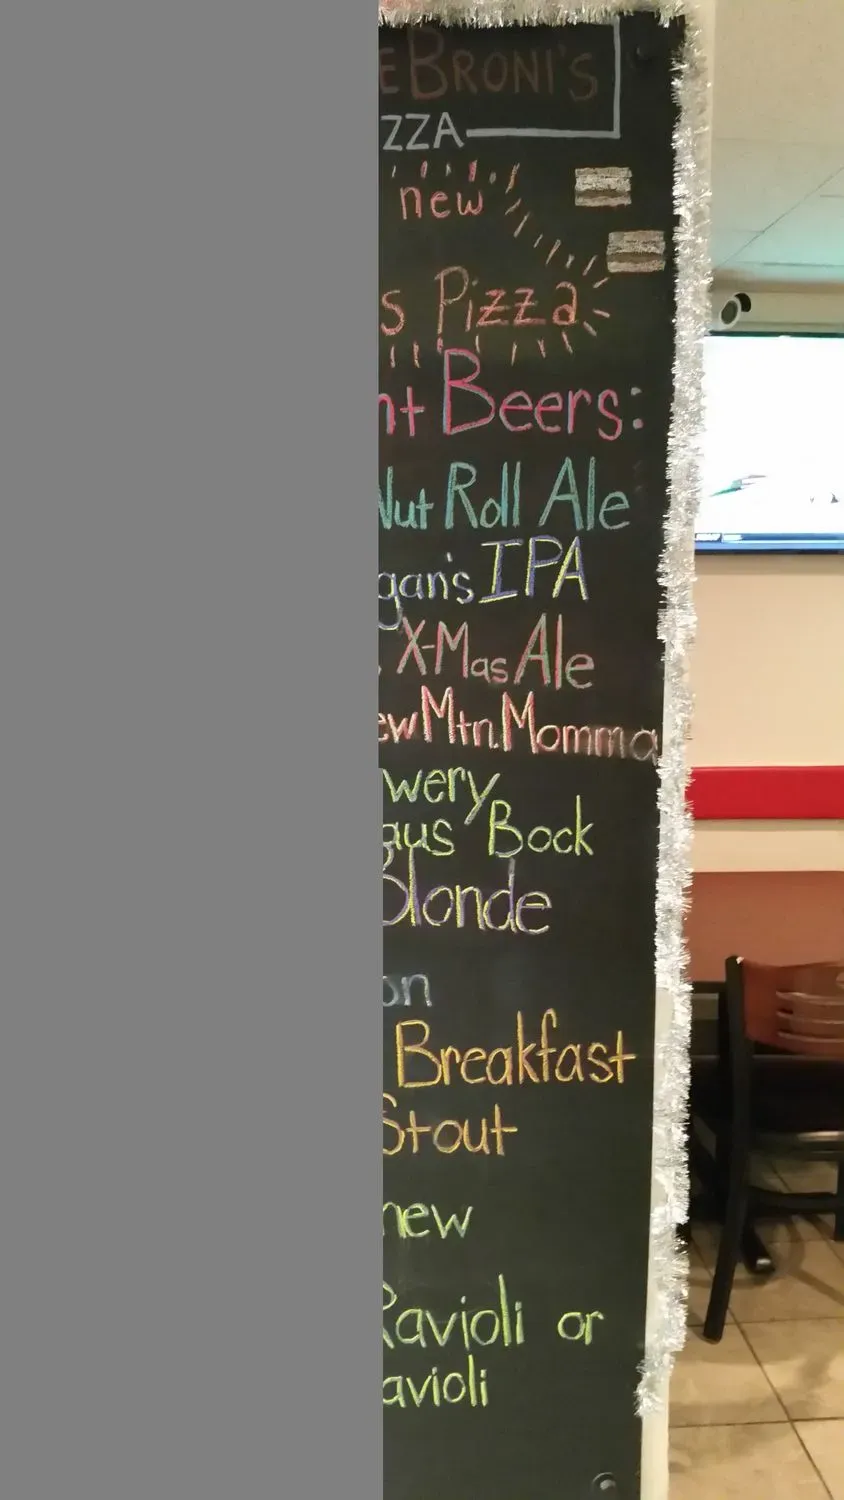 EBRONI'S
ZZA
new
s Pizza
nt Beers:
Nut Roll Ale
gan's IPA
X-Mas Ale
ew Mtn. Momma
wery
aus Bock
Blonde
on
Breakfast
Stout
new
Ravioli or
avioli